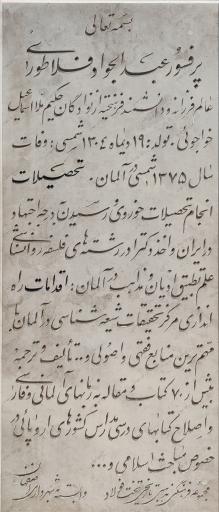 بسمه تعالی
پرفسور عبدالجواد فلاطوری
عالم فرزانه و دانشمند فرزند تبار نوادگان حکیم ملا اسماعیل
خواجوئی. تولد: ۱۹ دیماه ۱۳۰۴ شمسی: وفات
سال ۱۳۷۵ شمسی در آلمان. تحصیلات
انجام تحصیلات حوزوی و رسیدن به درجه اجتهاد
در ایران و اخذ دکترا در رشته های فلسفه روانشناسی
علم تطبیق ادیان و مذاهب در آلمان: اقدامات راه
اندازی مرکز تحقیقات شیعه شناسی در آلمان با
مهم ترین منابع فقهی و اصولی و.. تألیف و ترجمه
بیش از ۷۰ کتاب و مقاله به زبانهای آلمانی و فارسی
و اصلاح کتابهای درسی مدارس کشورهای اروپائی در
خصوص مباحث اسلامی و...
مجموعه فرهنگی مذهبی تاریخی تخت فولاد وابسته به شهرداری اصفهان